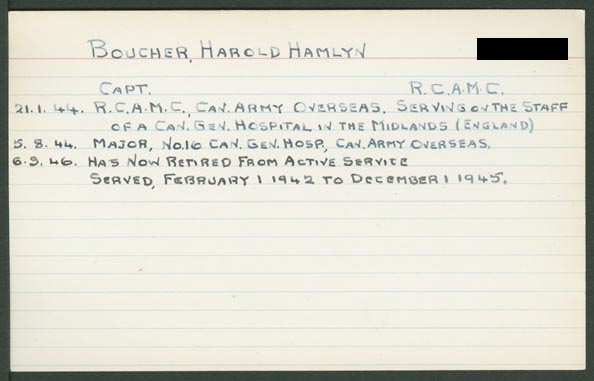 BOUCHER, HAROLD HAMLYN
CAPT. R.C.A.M.C.
21.1.44. R.C.A.M.C., CAN. ARMY OVERSEAS. SERVING ON THE STAFF
OF A CAN. GEN. HOSPITAL IN THE MIDLANDS (ENGLAND)
5.8.44. MAJOR, NO.16 CAN. GEN. HOSP, CAN. ARMY OVERSEAS.
6.3.46. HAS NOW RETIRED FROM ACTIVE SERVICE
SERVED, FEBRUARY 1 1942 TO DECEMBER 1 1945.